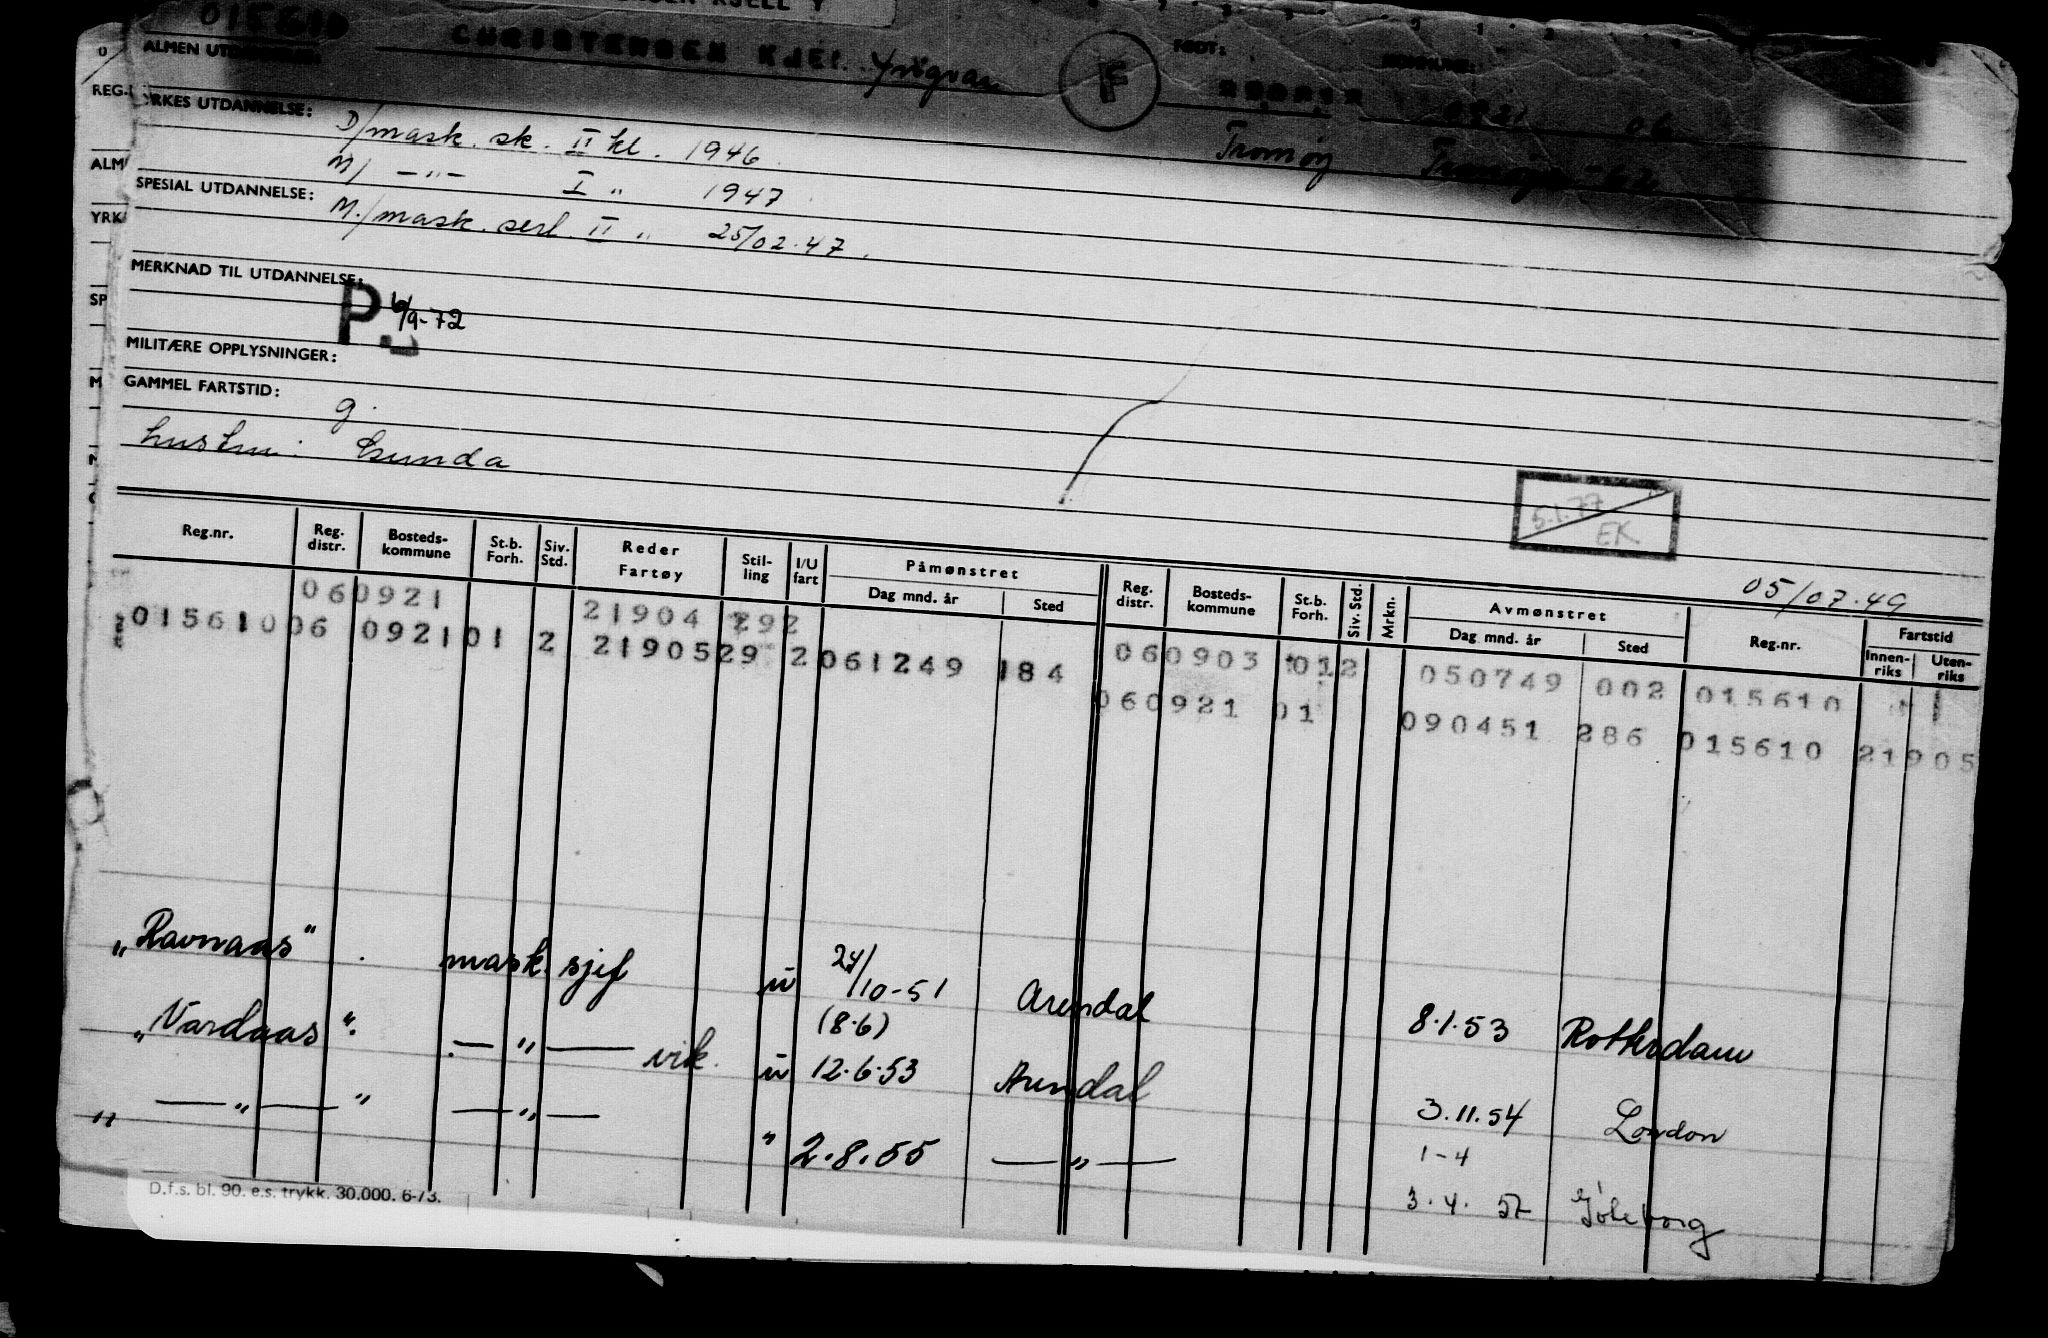 KJELL Y
015610
ALMEN UTDANNELSE:
CHRISTENSEN KJEL. Yngvar
F
FØDT:
KOMMUNE:
REG.
YRKES UTDANNELSE:
0921 06
D/mask. sk. II kl. 1946
Tromøy
M/ —"— I " 1947
ALM
SPESIAL UTDANNELSE:
M./mask. sert. II " 25/02.47.
YRK
MERKNAD TIL UTDANNELSE:
SP
P 6/9-72
MILITÆRE OPPLYSNINGER:
M
GAMMEL FARTSTID:
g.
hustru: Gunda
5.1.77
EK
05/07.49
Reg.nr. Reg. distr. Bosteds-kommune St.b. Forh. Siv. Std. Reder Fartøy Stil-ling I/U fart Påmønstret Dag mnd. år Sted Reg. distr. Bosteds-kommune St.b. Forh. Siv. Std. Mrkn. Avmønstret Dag mnd. år Sted Reg.nr. Fartstid Innen-riks Uten-riks
060921 21904 292 060903 012 050749 002 015610
015610 06 0921 01 2 21905 29 2 061249 184 060921 01 090451 286 015610 21905
"Ravnaas" mask. sjef u 24/10-51 Arendal 8.1.53 Rotterdam
(8.6)
"Vardaas". —"— vik. u 12.6.53 Arendal 3.11.54 London
1-4
" —"— " —"— " 2.8.55 —"— 3.4.57 Göteborg
D.f.s. bl. 90. e.s. trykk. 30.000. 6-73.